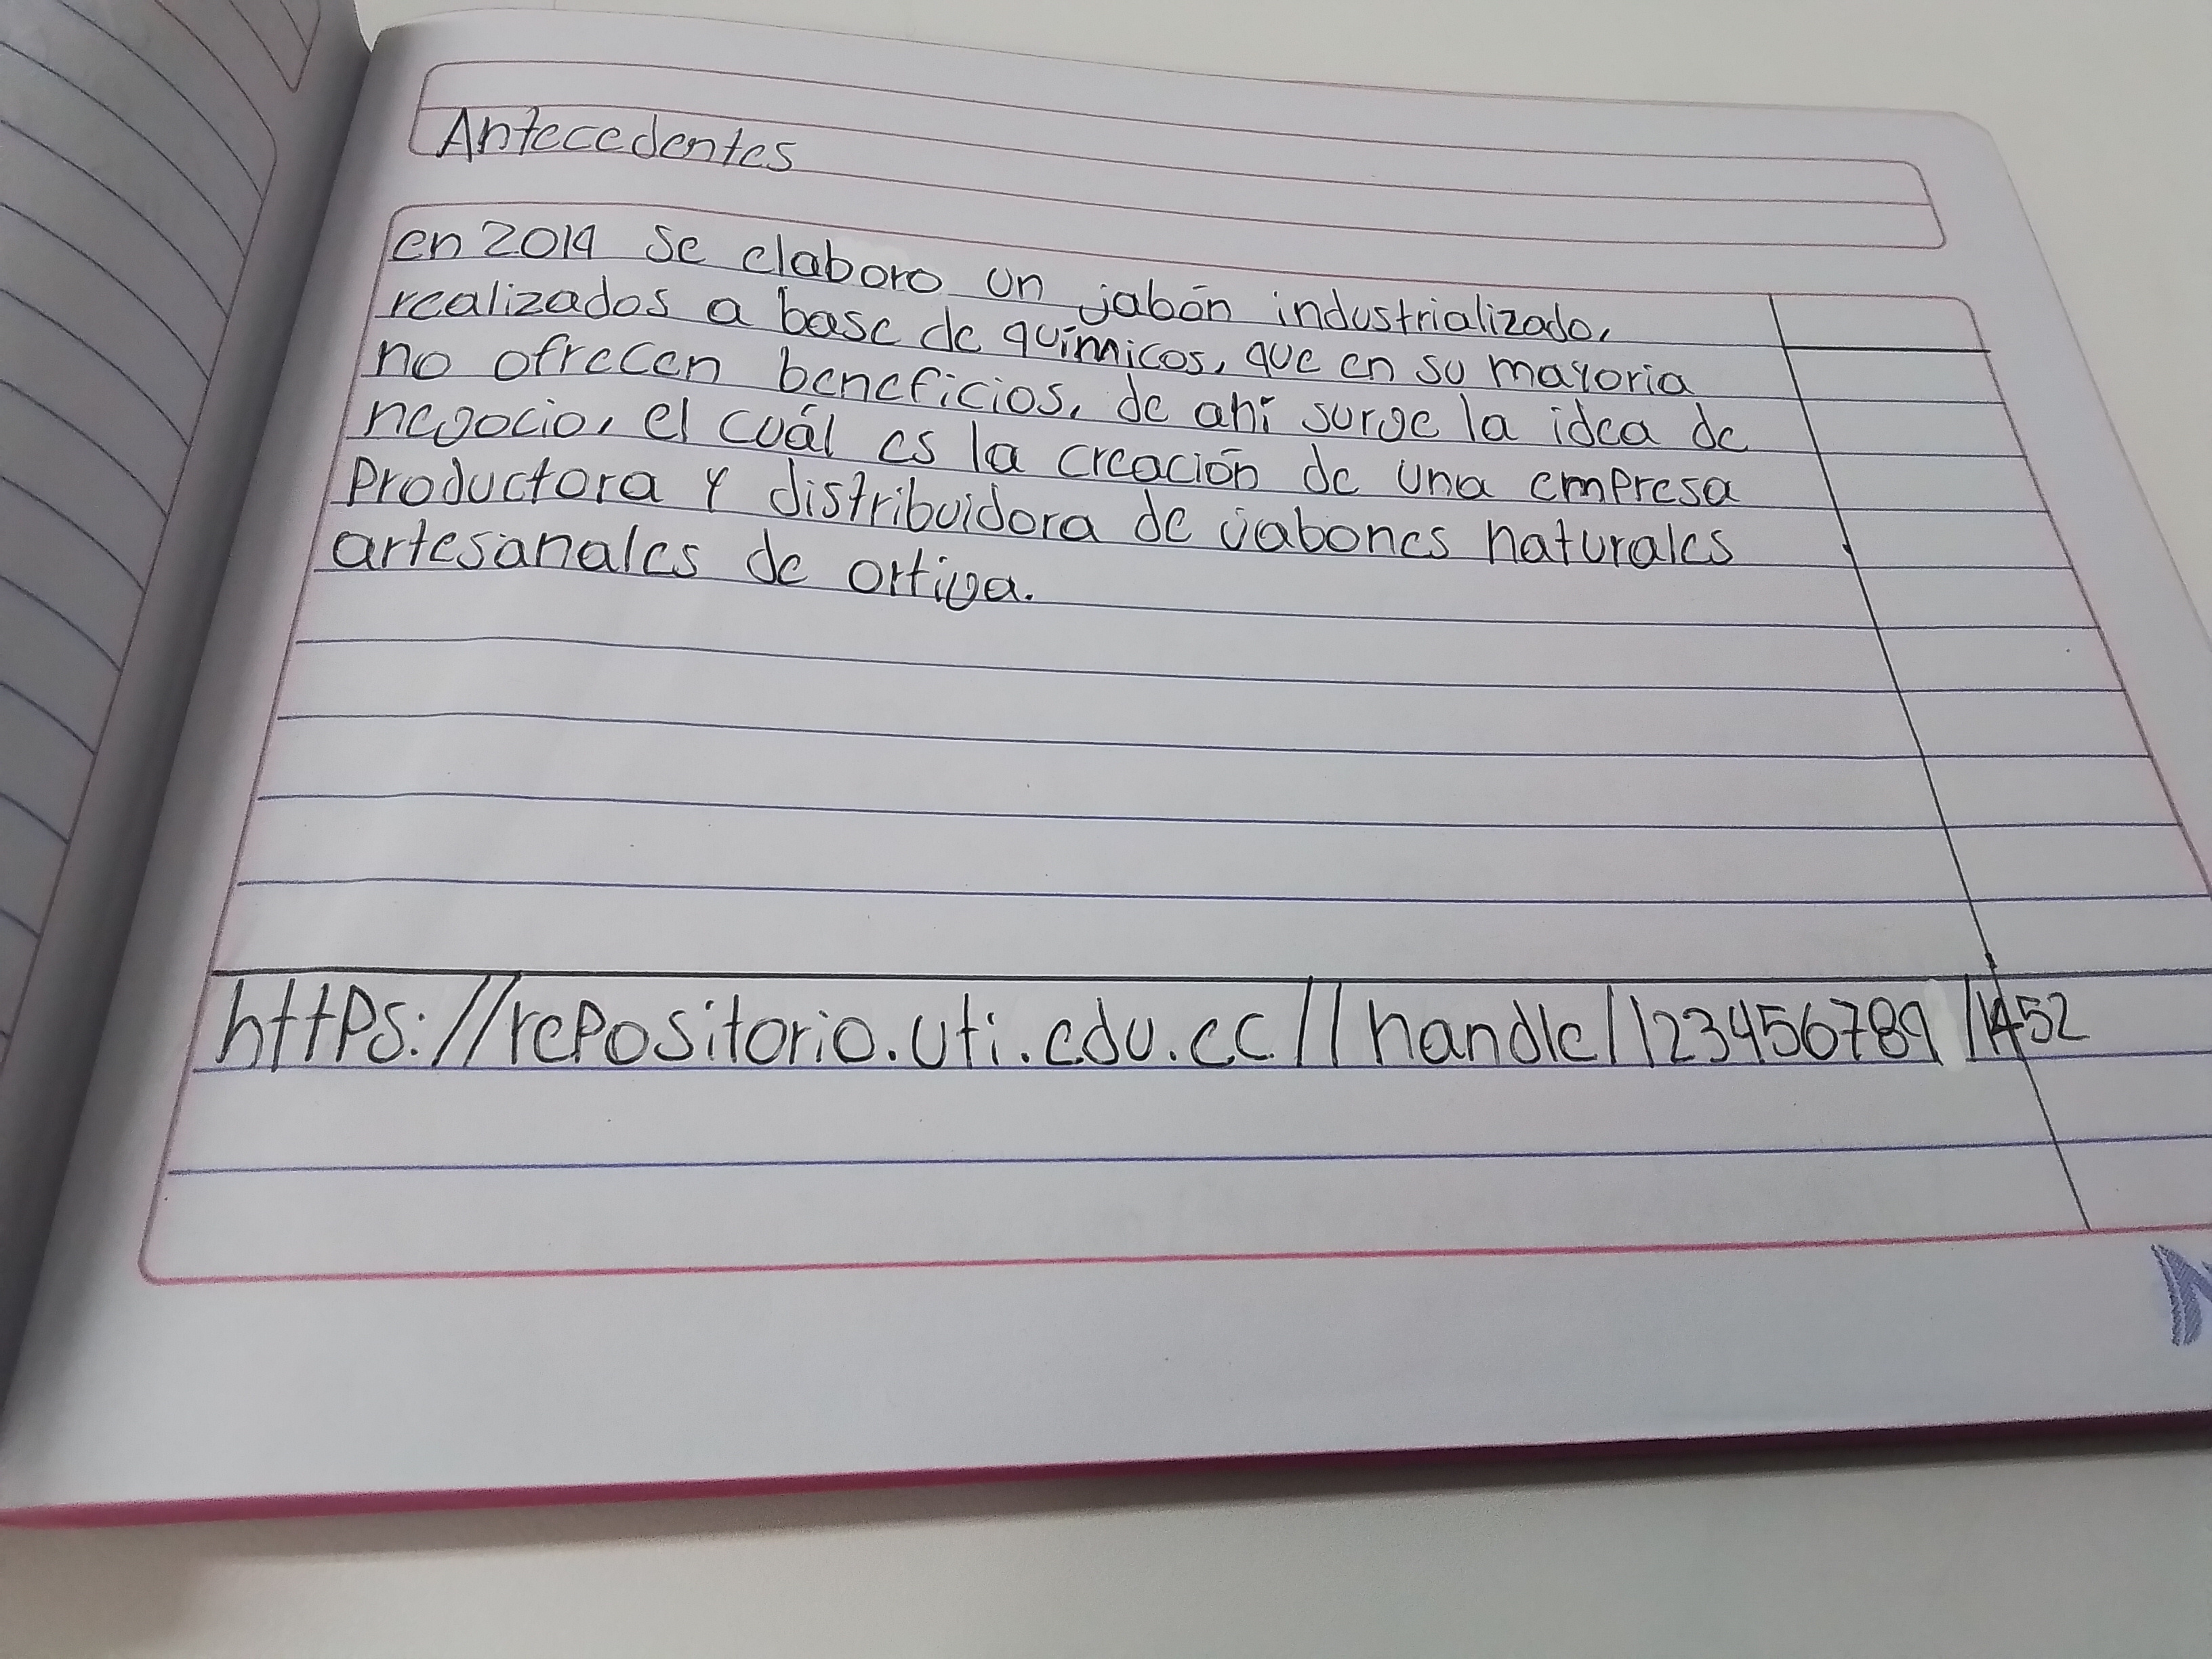 Antecedentes
en 2019 se elaboro un jabón industrializado,
realizados a base de químicos, que en su mayoria
no ofrecen beneficios, de ahí surge la idea de
negocio, el cuál es la creación de una empresa
Productora y distribuidora de jabones naturales
artesanales de ortiga.
https://repositorio.uti.edu.ec//handle/123456789/1452